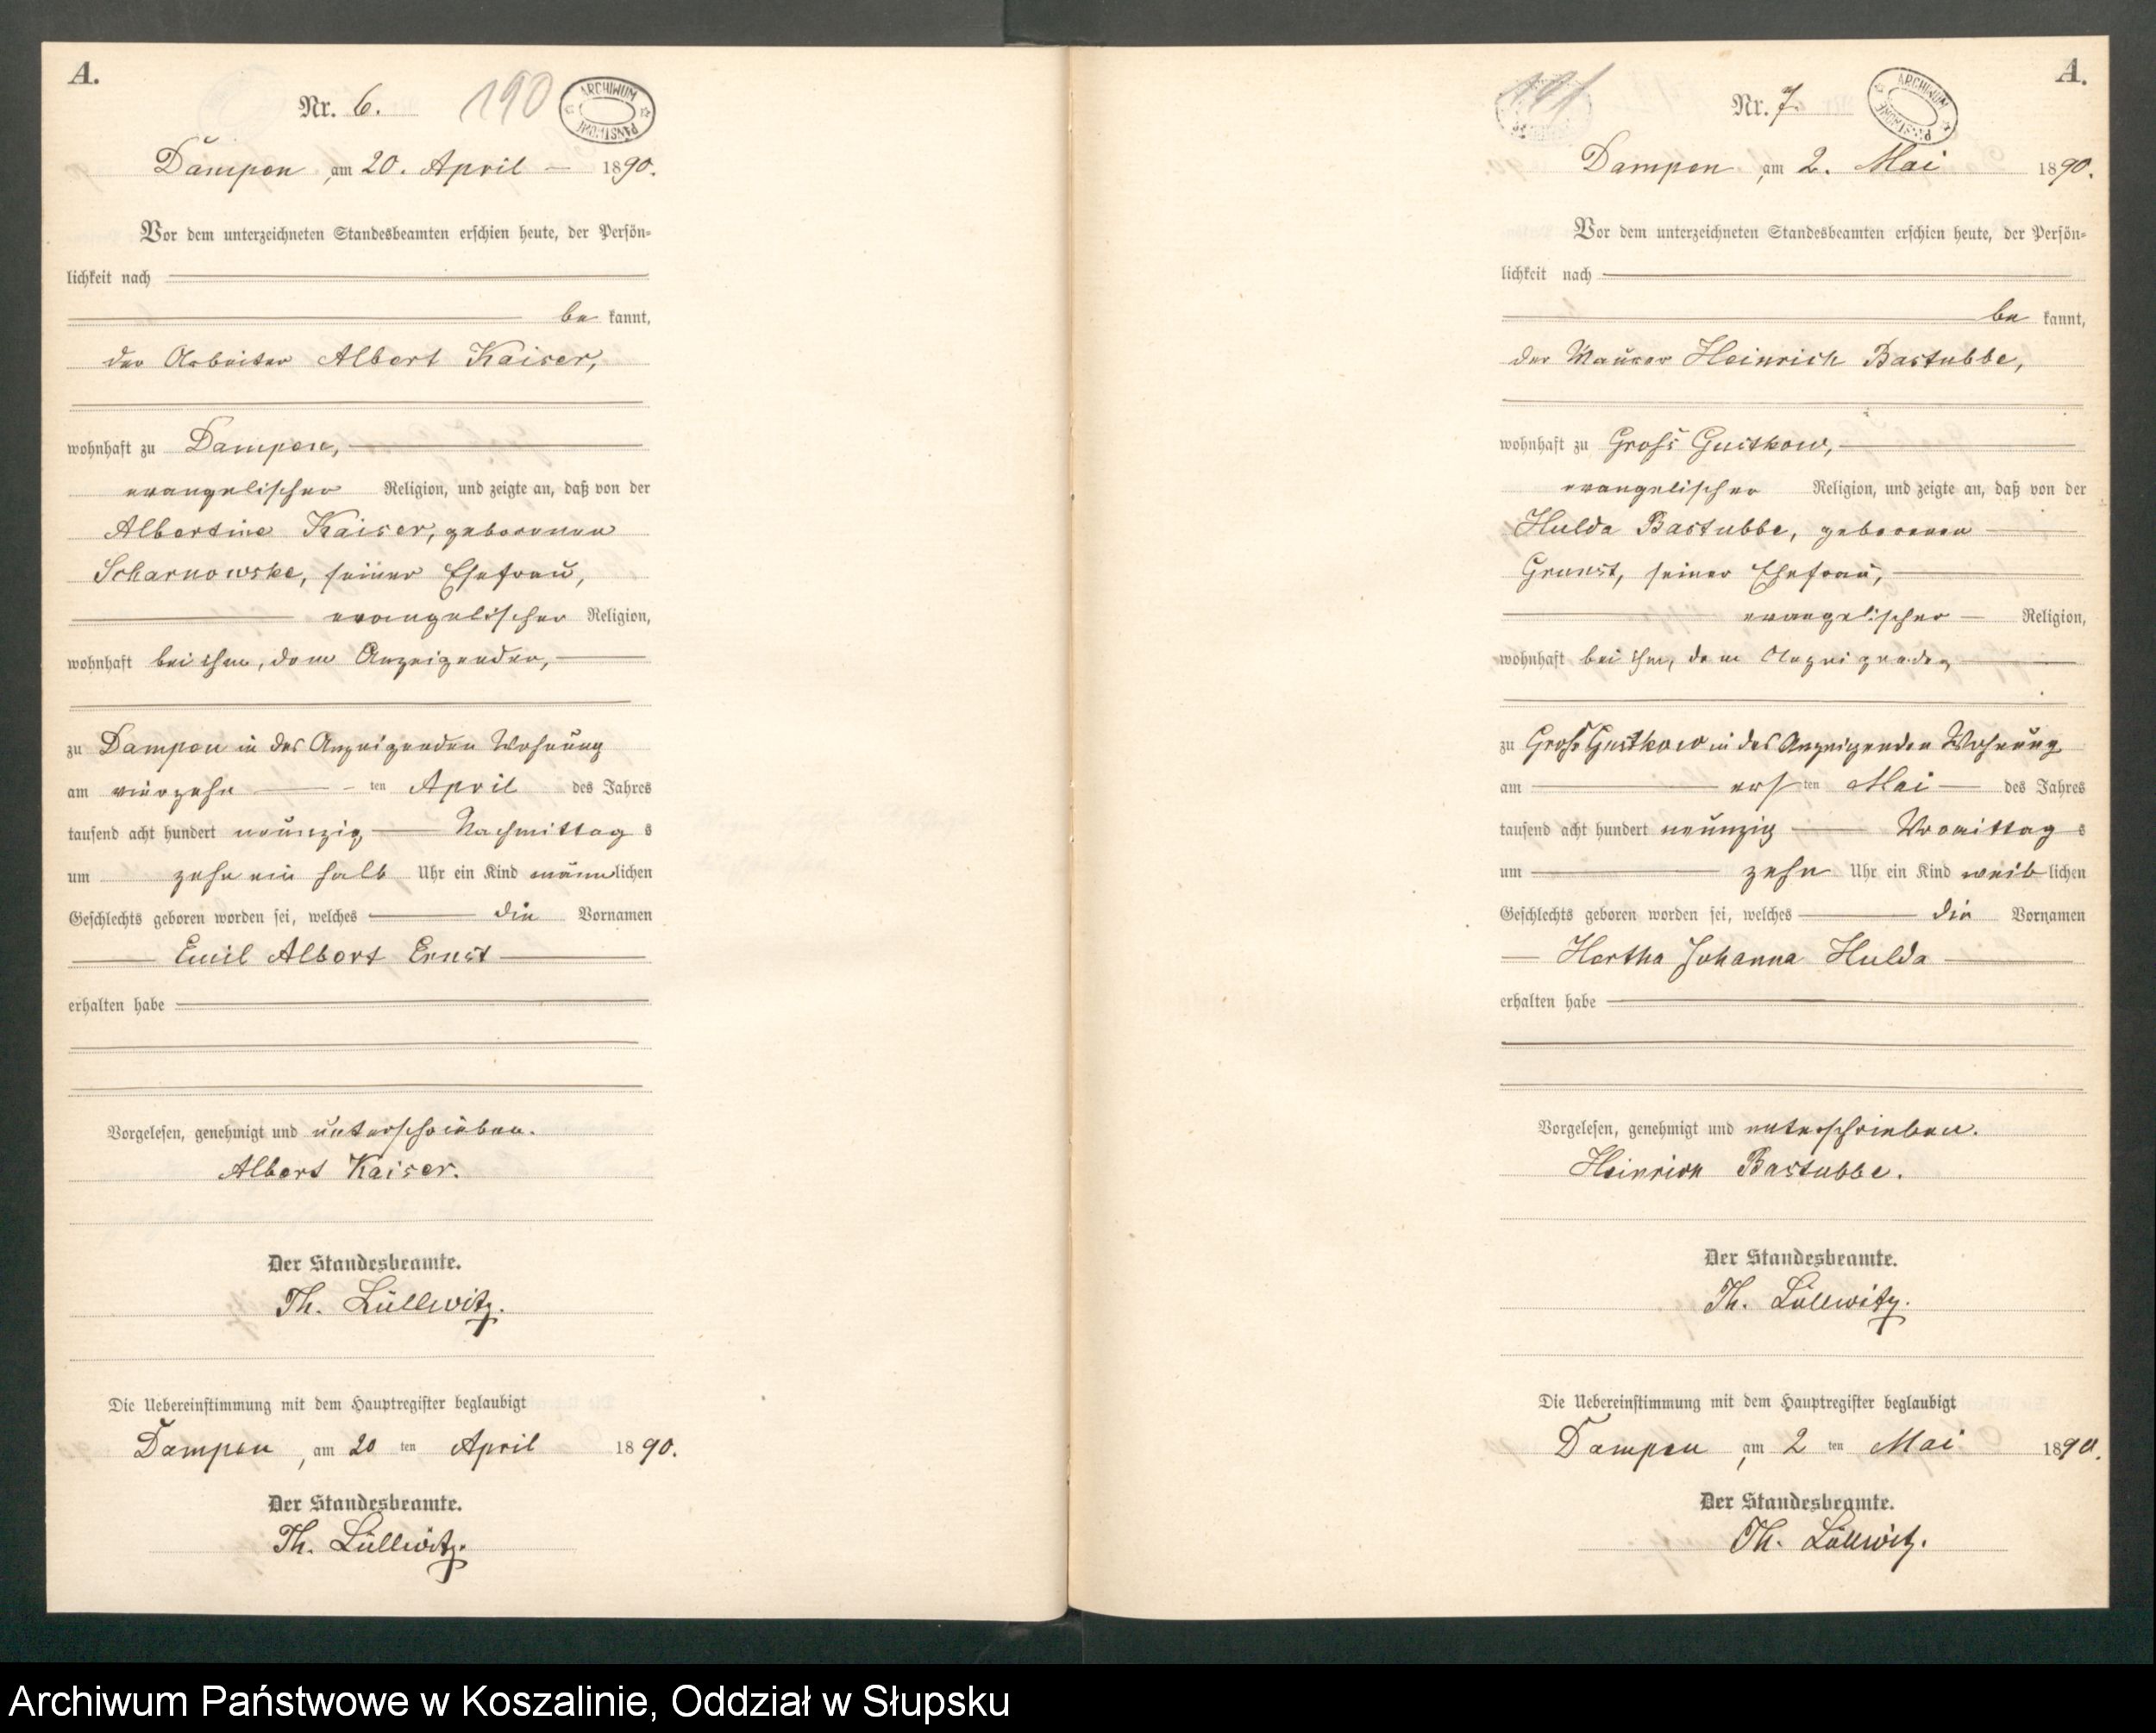 A.
Nr. 6.
190
ARCHIWUM PAŃSTWOWE
Dampen, am 20. April 1890.
Vor dem unterzeichneten Standesbeamten erschien heute, der Persön-
lichkeit nach
be kannt,
der Arbeiter Albert Kaiser,
wohnhaft zu Dampen,
evangelischer Religion, und zeigte an, daß von der
Albertine Kaiser, geborenen
Scharnowske, seiner Ehefrau,
evangelischer Religion,
wohnhaft bei ihm, dem Anzeigenden,
zu Dampen in des Anzeigenden Wohnung
am vierzehn ten April des Jahres
tausend acht hundert neunzig Nachmittag s
um zehn ein halb Uhr ein Kind männ lichen
Geschlechts geboren worden sei, welches die Vornamen
Emil Albert Ernst
erhalten habe
Vorgelesen, genehmigt und unterschrieben.
Albert Kaiser.
Der Standesbeamte.
Th. Lüllwitz.
Die Uebereinstimmung mit dem Hauptregister beglaubigt
Dampen, am 20 ten April 1890.
Der Standesbeamte.
Th. Lüllwitz.
A.
191
Nr. 7.
ARCHIWUM PAŃSTWOWE
Dampen, am 2. Mai 1890.
Vor dem unterzeichneten Standesbeamten erschien heute, der Persön-
lichkeit nach
be kannt,
der Maurer Heinrich Bastubbe,
wohnhaft zu Groß Gustkow,
evangelischer Religion, und zeigte an, daß von der
Hulda Bastubbe, geborenen
seiner Ehefrau,
evangelischer Religion,
wohnhaft bei ihm, dem Anzeigenden
zu Groß Gustkow in des Anzeigenden Wohnung
am ers ten Mai des Jahres
tausend acht hundert neunzig Vormittag s
um zehn Uhr ein Kind weib lichen
Geschlechts geboren worden sei, welches die Vornamen
Hertha Johanna Hulda
erhalten habe
Vorgelesen, genehmigt und unterschrieben.
Heinrich Bastubbe.
Der Standesbeamte.
Th. Lüllwitz.
Die Uebereinstimmung mit dem Hauptregister beglaubigt
Dampen, am 2 ten Mai 1890.
Der Standesbeamte.
Th. Lüllwitz.
Archiwum Państwowe w Koszalinie, Oddział w Słupsku